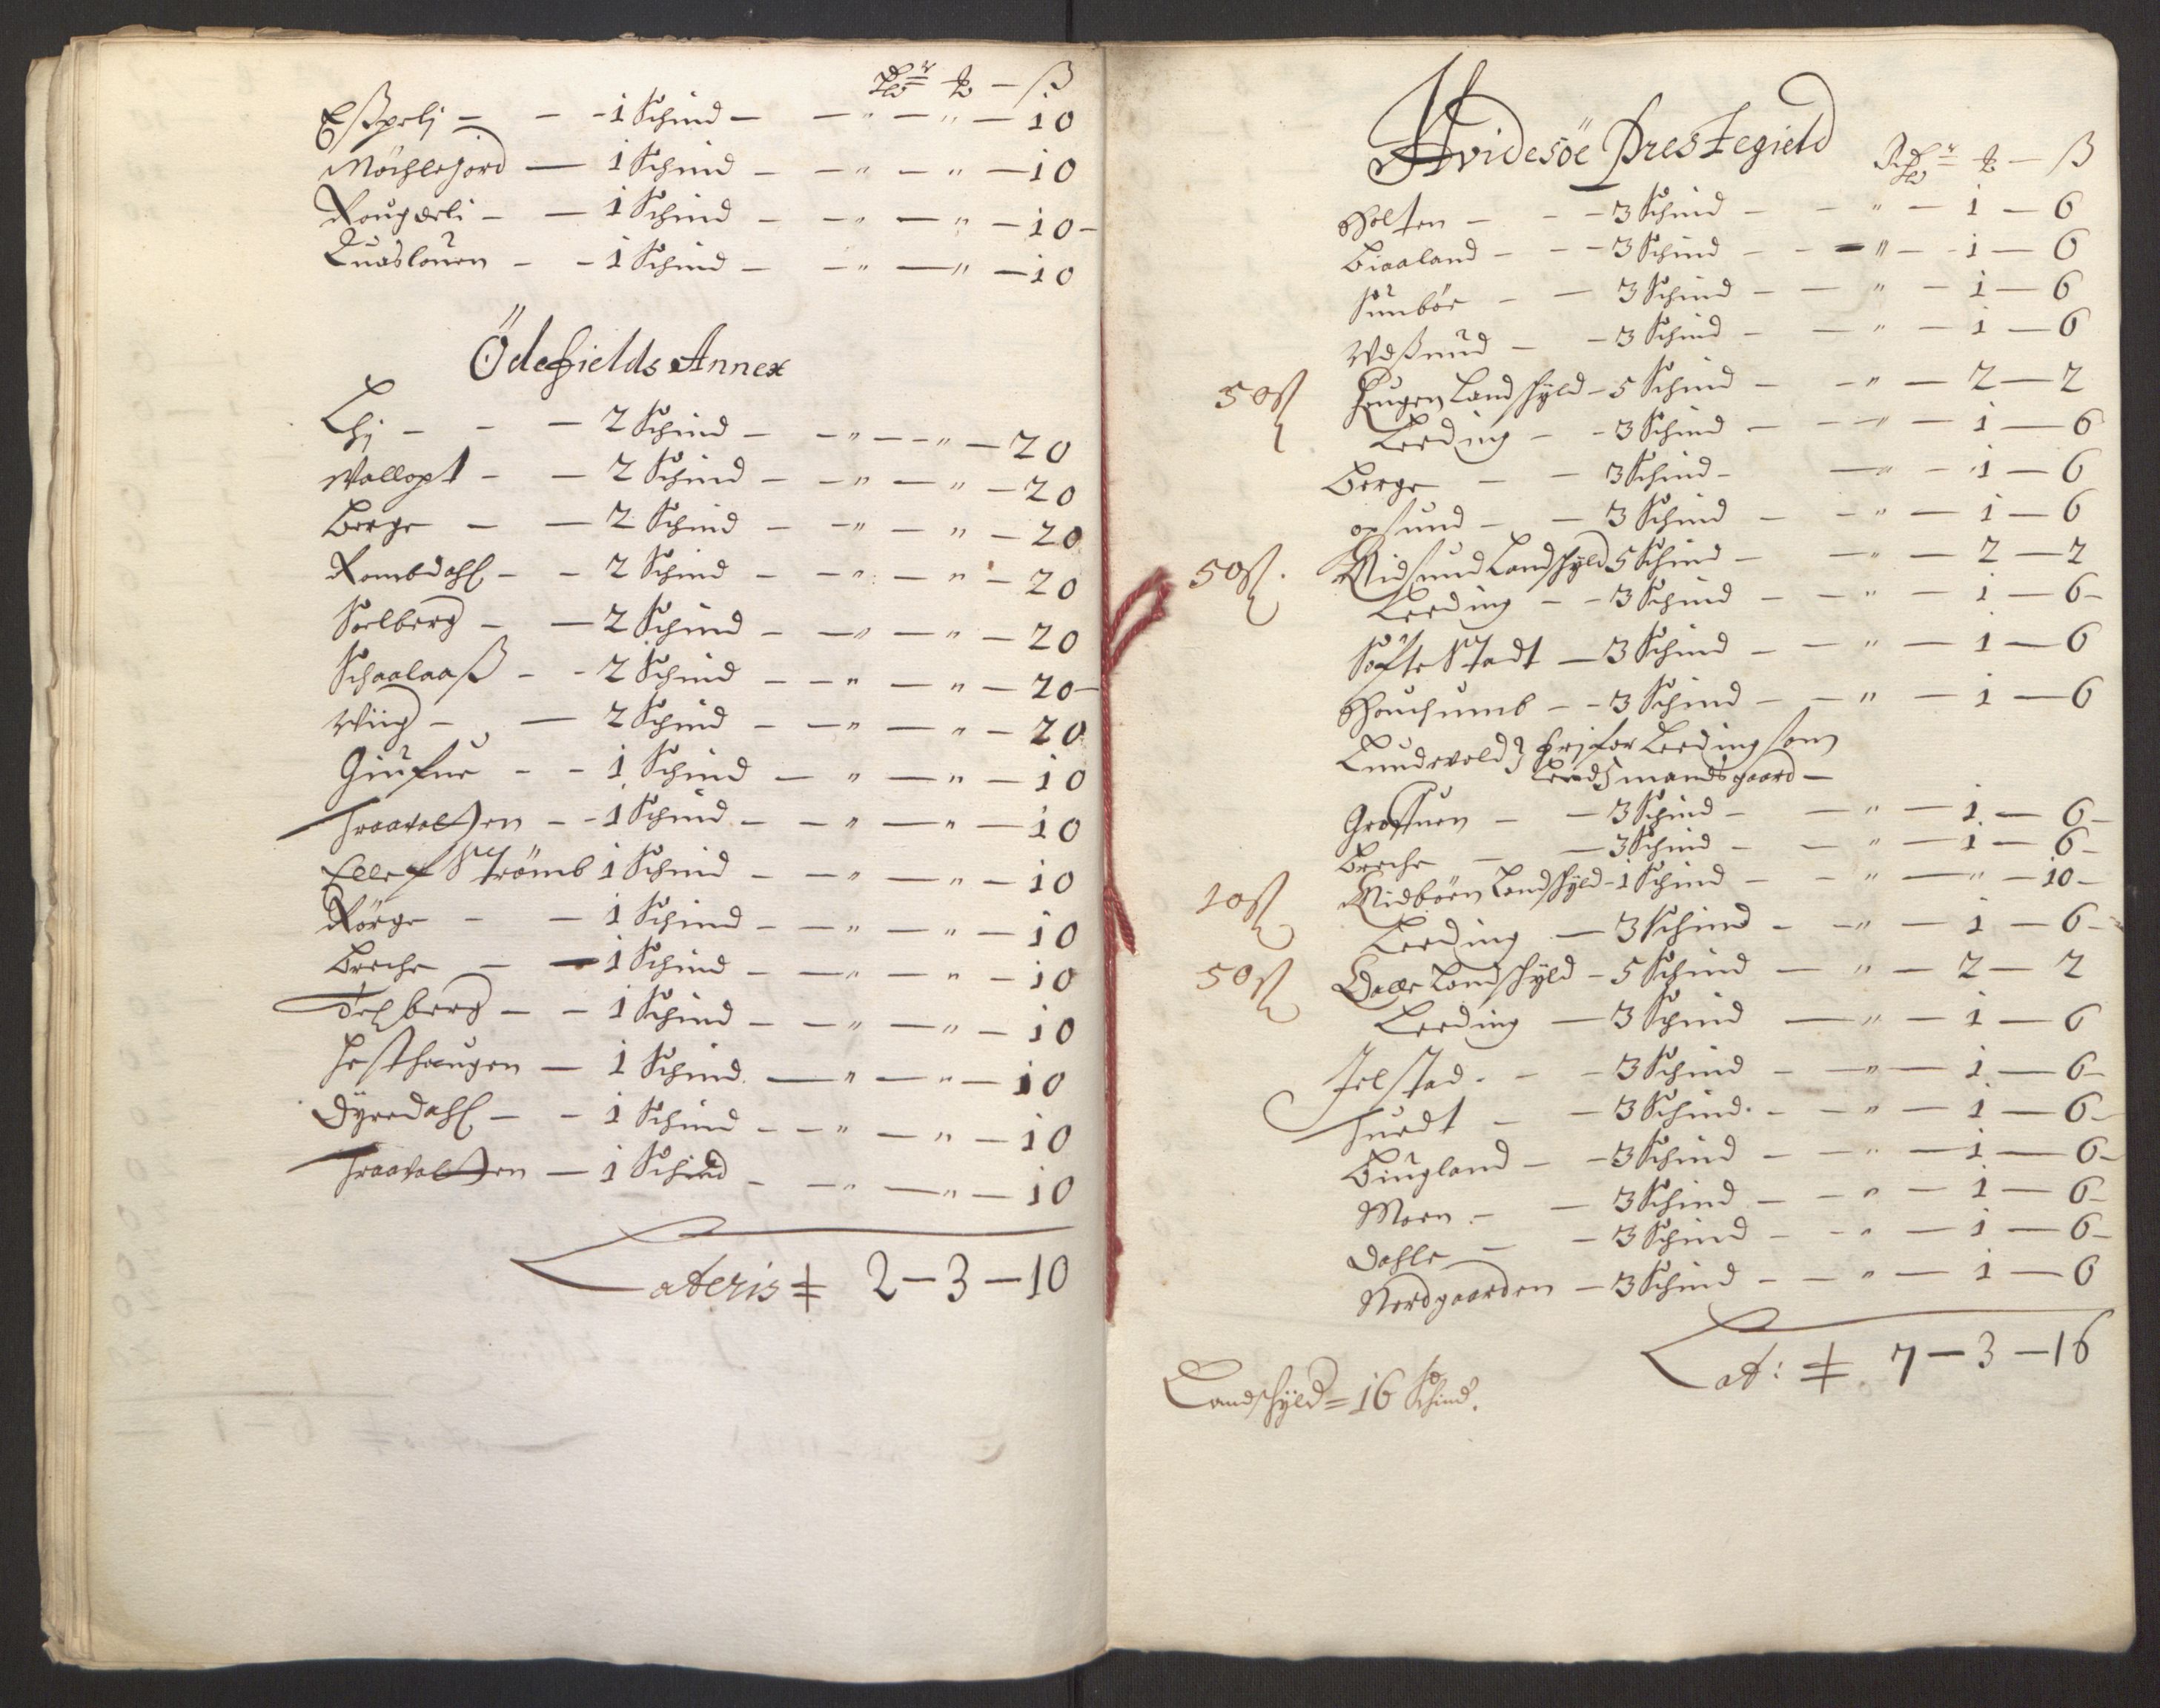 Rdr — ß
Eßperlj — — 1 Schind — — " — " — 10
Möchlejord — 1 Schind — — " — " — 10
Rougderli — — 1 Schind — — " — " — 10 —
Quaslouen — — 1 Schind — — " — " — 10
Ödefields Annex
Lhj — — — 2 Schind — — " — — " — 20
Wallopt — — 2 Schind — — " — " — 20
Berge — — 2 Schind — — " — " — 20
Rombdahl — — 2 Schind — — " — " — 20
Soelberg — — 2 Schind — — " — " — 20
Schaalaaß — — 2 Schind — — " — " — 20 —
Wiig — — 2 Schind — — " — " — 20
Giufue — — 1 Schind — " — " — 10
Traatolthen — — 1 Schind — — " — " — 10
Ellef Strömb 1 Schind — — " — " — 10
Rörge — — 1 Schind — — " — " — 10
Berche — — 1 Schind — — " — " — 10
Telberg — — 1 Schind — — " — " — 10
Hesthaugen — 1 Schind — " — " — 10
Dyredahl — — 1 Schind — — " — " — 10
Traatolthen — 1 Schind — — " — " — 10
Lateris 2 — 3 — 10
Hvidesöe Prestegield
Rdr — ß
Holten — — — 3 Schind — — " — 1 — 6
Biaaland — — — 3 Schind — — " — — 1 — 6
Sunböe — — 3 Schind — — " — 1 — 6
Weßnud — — 3 Schind — — " — 1 — 6
50 ß Haugen Landschyld — 5 Schind — — " — 2 — 2
Leeding — — 3 Schind — — " — 1 — 6
Berge — — 3 Schind — — " — 1 — 6
opsund — — 3 Schind — — " — 1 — 6
50 ß. Midsund Landschyld 5 Schind — — " — 2 — 2
Leeding — — 3 Schind — — " — 1 — 6 —
Söfte Stadt — 3 Schind — — " — 1 — 6
Houchumb — — 3 Schind — — " — 1 — 6
Lundevold frj for Leeding som
Lendsmandsgaard —
Graffuen — — 3 Schind — — " — 1 — 6 —
Berche — — 3 Schind — — " — 1 — 6 —
10 ß Midböen Landschyld — 1 Schind — — " — " — 10 —
Leeding — 3 Schind — — " — 1 — 6 —
50 ß Dalle Landschyld — 5 Schind — " — 2 — 2
Leeding — 3 Schind — " — 1 — 6
Jelstad — — 3 Schind — — " — 1 — 6 —
Tuedt — — 3 Schind — — " — 1 — 6 —
Biugland — — 3 Schind — — " — 1 — 6 —
Moen — — 3 Schind — — " — 1 — 6 —
Dahle — — 3 Schind — — " — 1 — 6 —
Nordgaarden — 3 Schind — — " — 1 — 6
Lat: 7 — 3 — 16
Landschyld = 16 Schind.